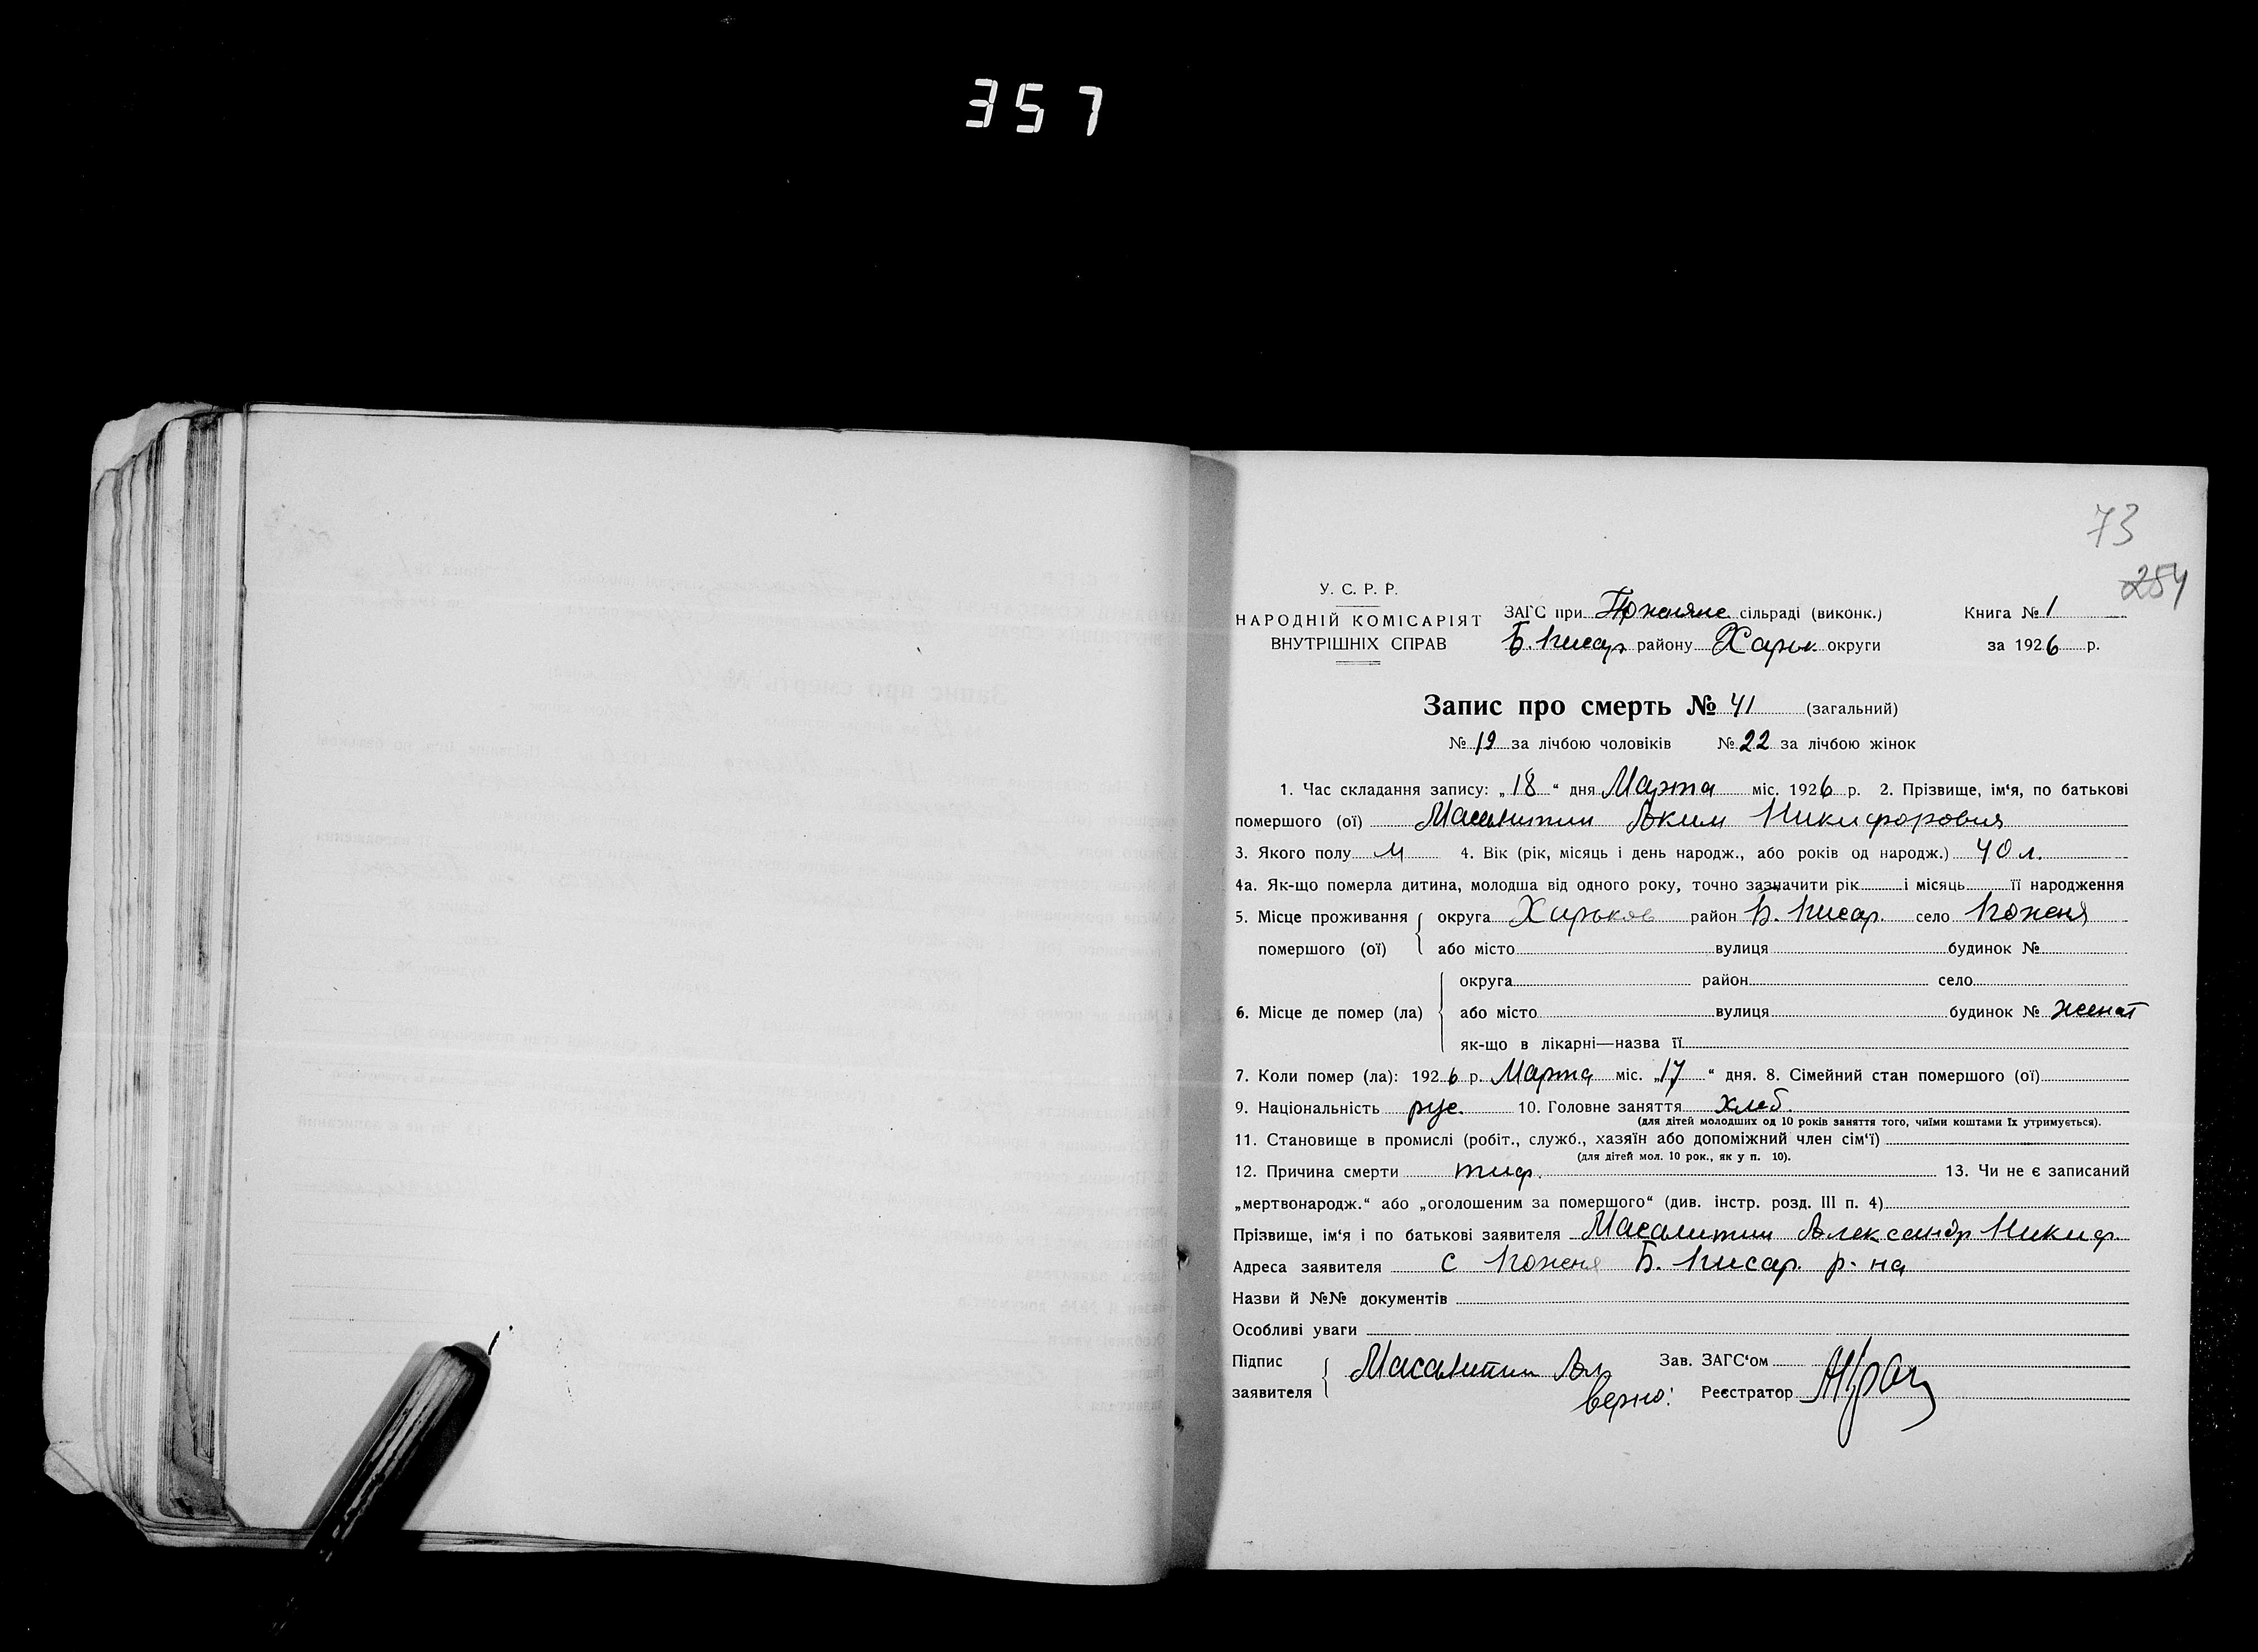 357
73
254
У. С. Р. Р.
НАРОДНІЙ КОМІСАРІЯТ
ВНУТРІШНІХ СПРАВ
ЗАГС при сільраді (виконк.)
Б. Писар району Харьк округи
Книга № 1
за 1926 р.
Запис про смерть № 41 (загальний)
№ 19 за лічбою чоловіків № 22 за лічбою жінок
1. Час складання запису: „18“ дня Марта міс. 1926 р. 2. Прізвище, ім‘я, по батькові
помершого (ої) Масалитин Аким Никифорович
3. Якого полу М 4. Вік (рік, місяць і день народж., або років од народж.) 40 л.
4а. Як-що померла дитина, молодша від одного року, точно зазначити рік і місяць її народження
5. Місце проживання помершого (ої) округа Харьков район Б. Писар. село
або місто вулиця будинок №
6. Місце де помер (ла) округа район село
або місто вулиця будинок № женат
як-що в лікарні—назва її
7. Коли помер (ла): 1926 р. Марта міс. „17“ дня. 8. Сімейний стан помершого (ої)
9. Національність рус. 10. Головне заняття хлеб.
(для дітей молодших од 10 років заняття того, чиїми коштами їх утримується).
11. Становище в промислі (робіт., служб., хазяїн або допоміжний член сім‘ї)
(для дітей мол. 10 рок., як у п. 10).
12. Причина смерти тиф. 13. Чи не є записаний
„мертвонародж.“ або „оголошеним за помершого“ (див. інстр. розд. III п. 4)
Прізвище, ім‘я і по батькові заявителя Масалитин Александр Никиф.
Адреса заявителя с Б. Писар. р-на
Назви й №№ документів
Особливі уваги
Підпис заявителя Масалитин Ал Зав. ЗАГС‘ом
верно: Реєстратор